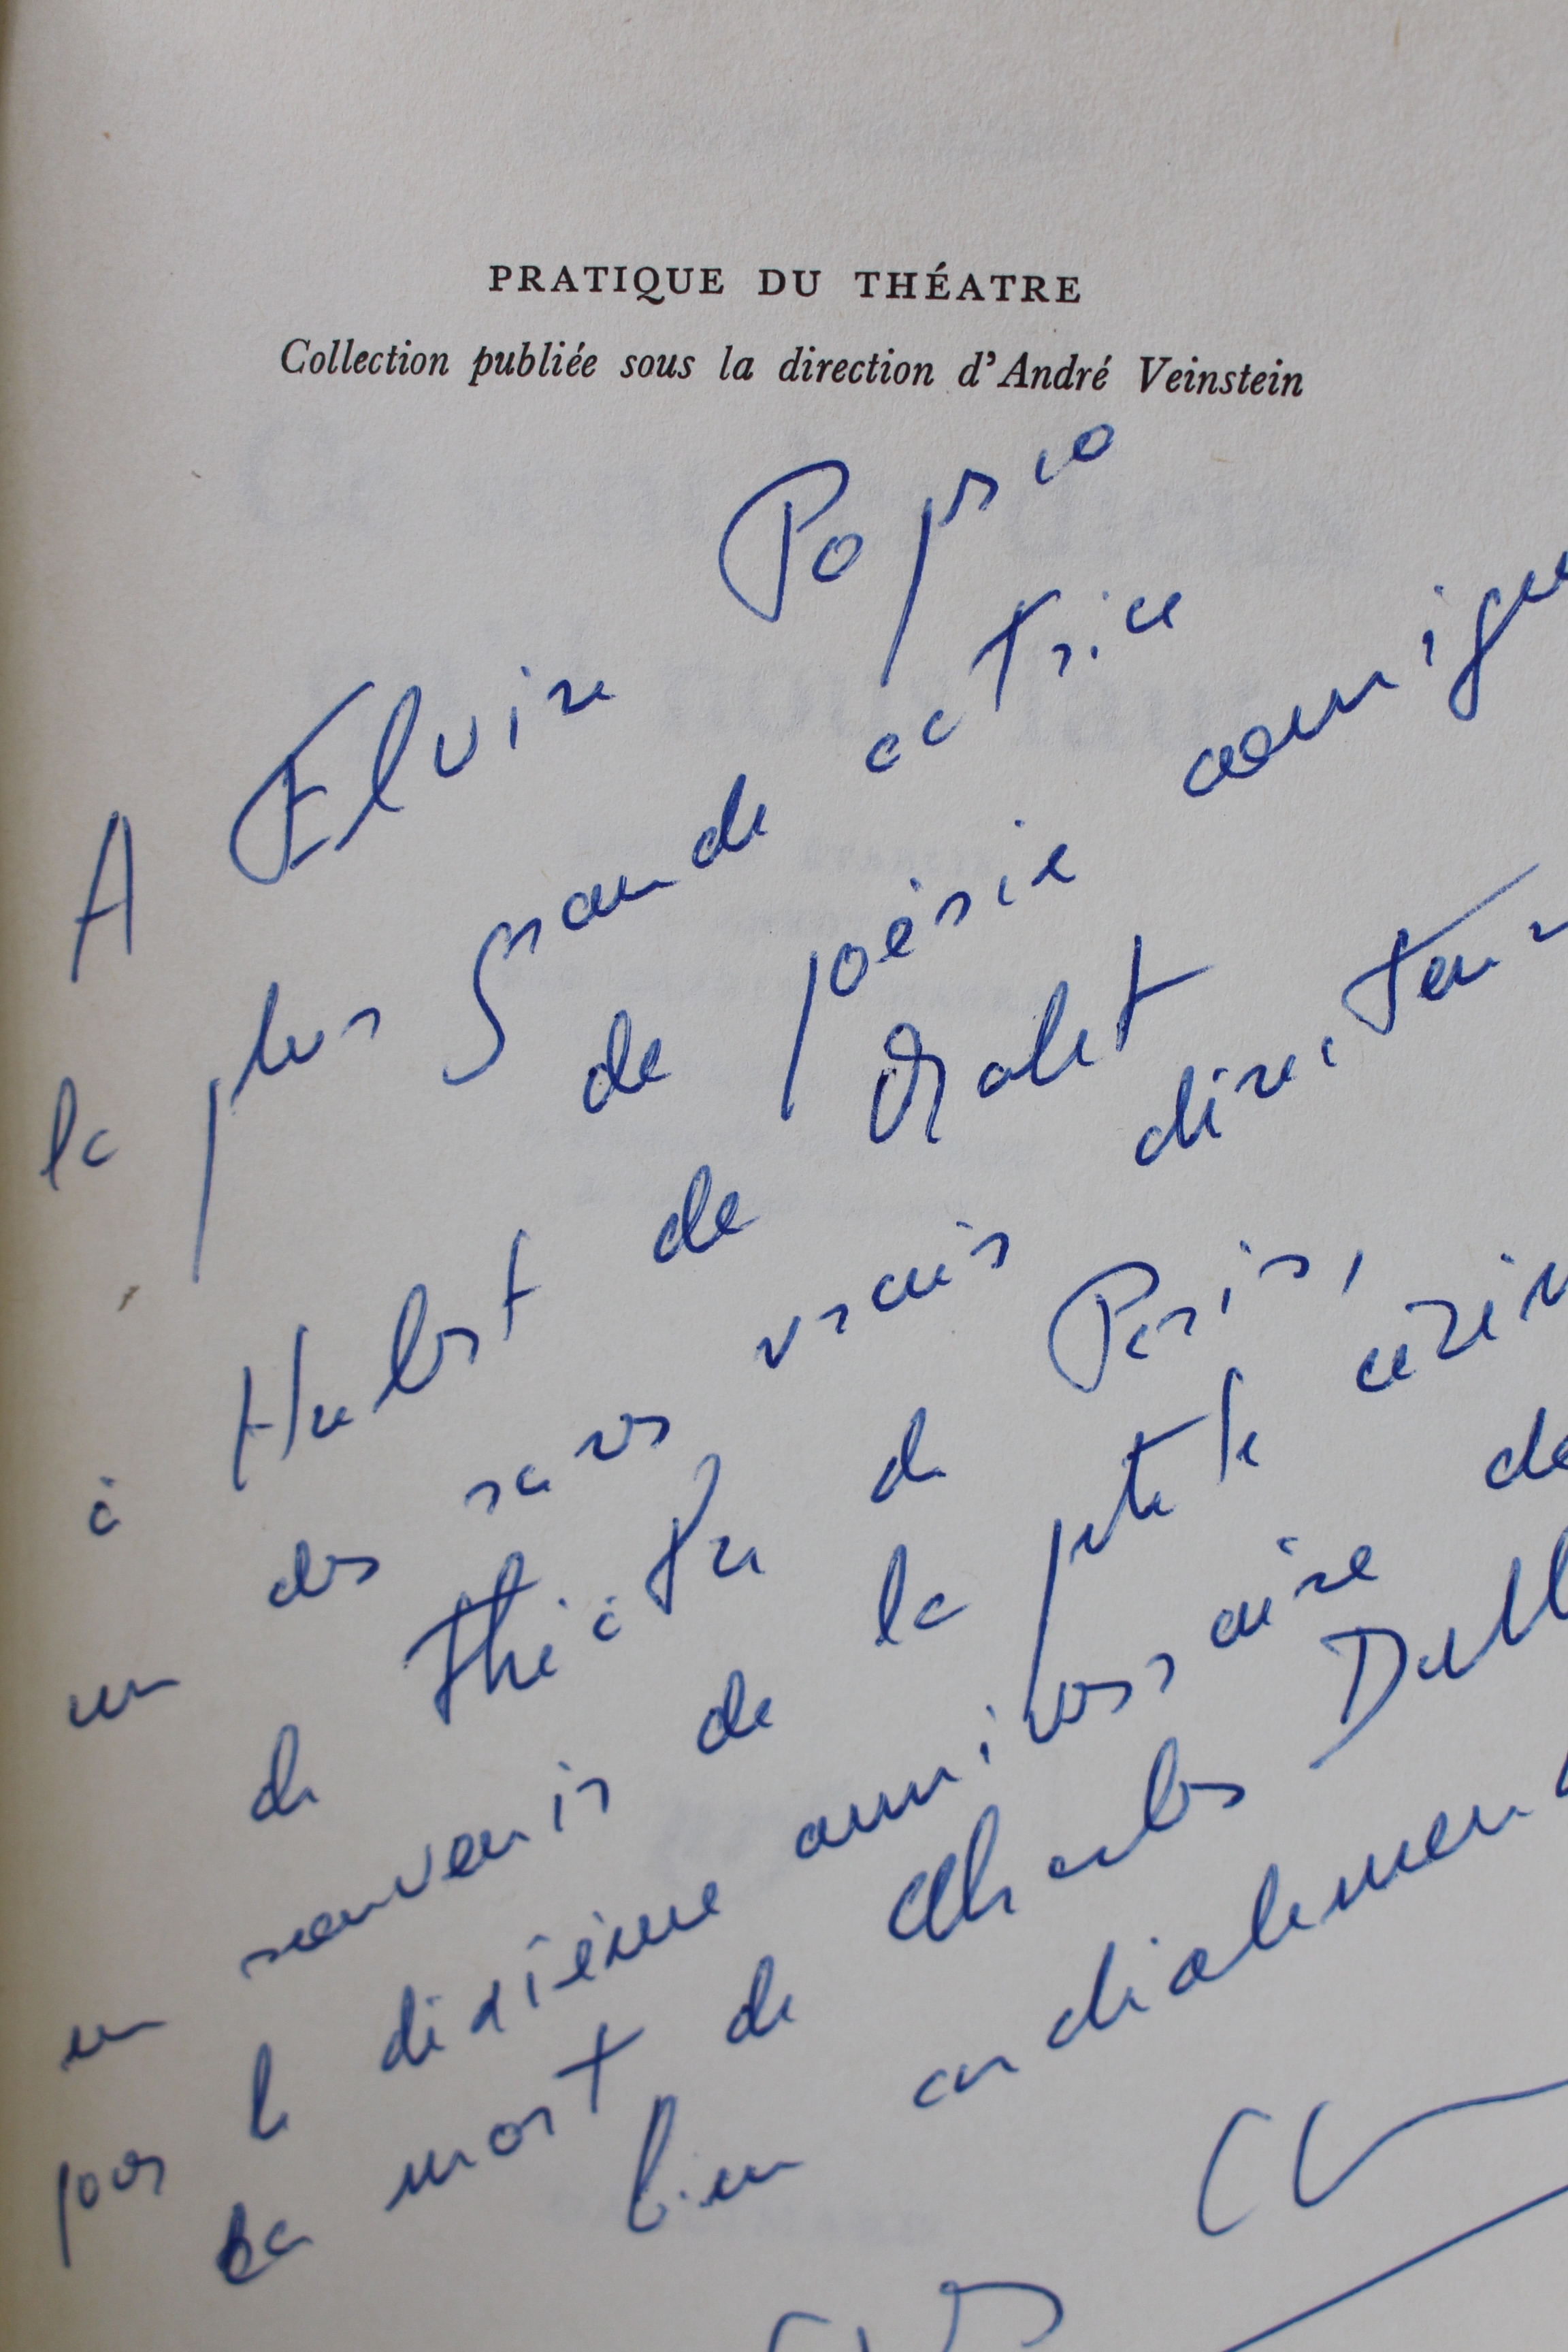 PRATIQUE DU THÉATRE
Collection publiée sous la direction d'André Veinstein
A Elvire Popesco
la plus grande actrice
de poésie comique
à Hubert de Malet
un des rares vrais directeur
de Théâtre de Paris,
en souvenir de la petite
pour le dixième anniversaire de
la mort de Charles Dull
bien cordialement